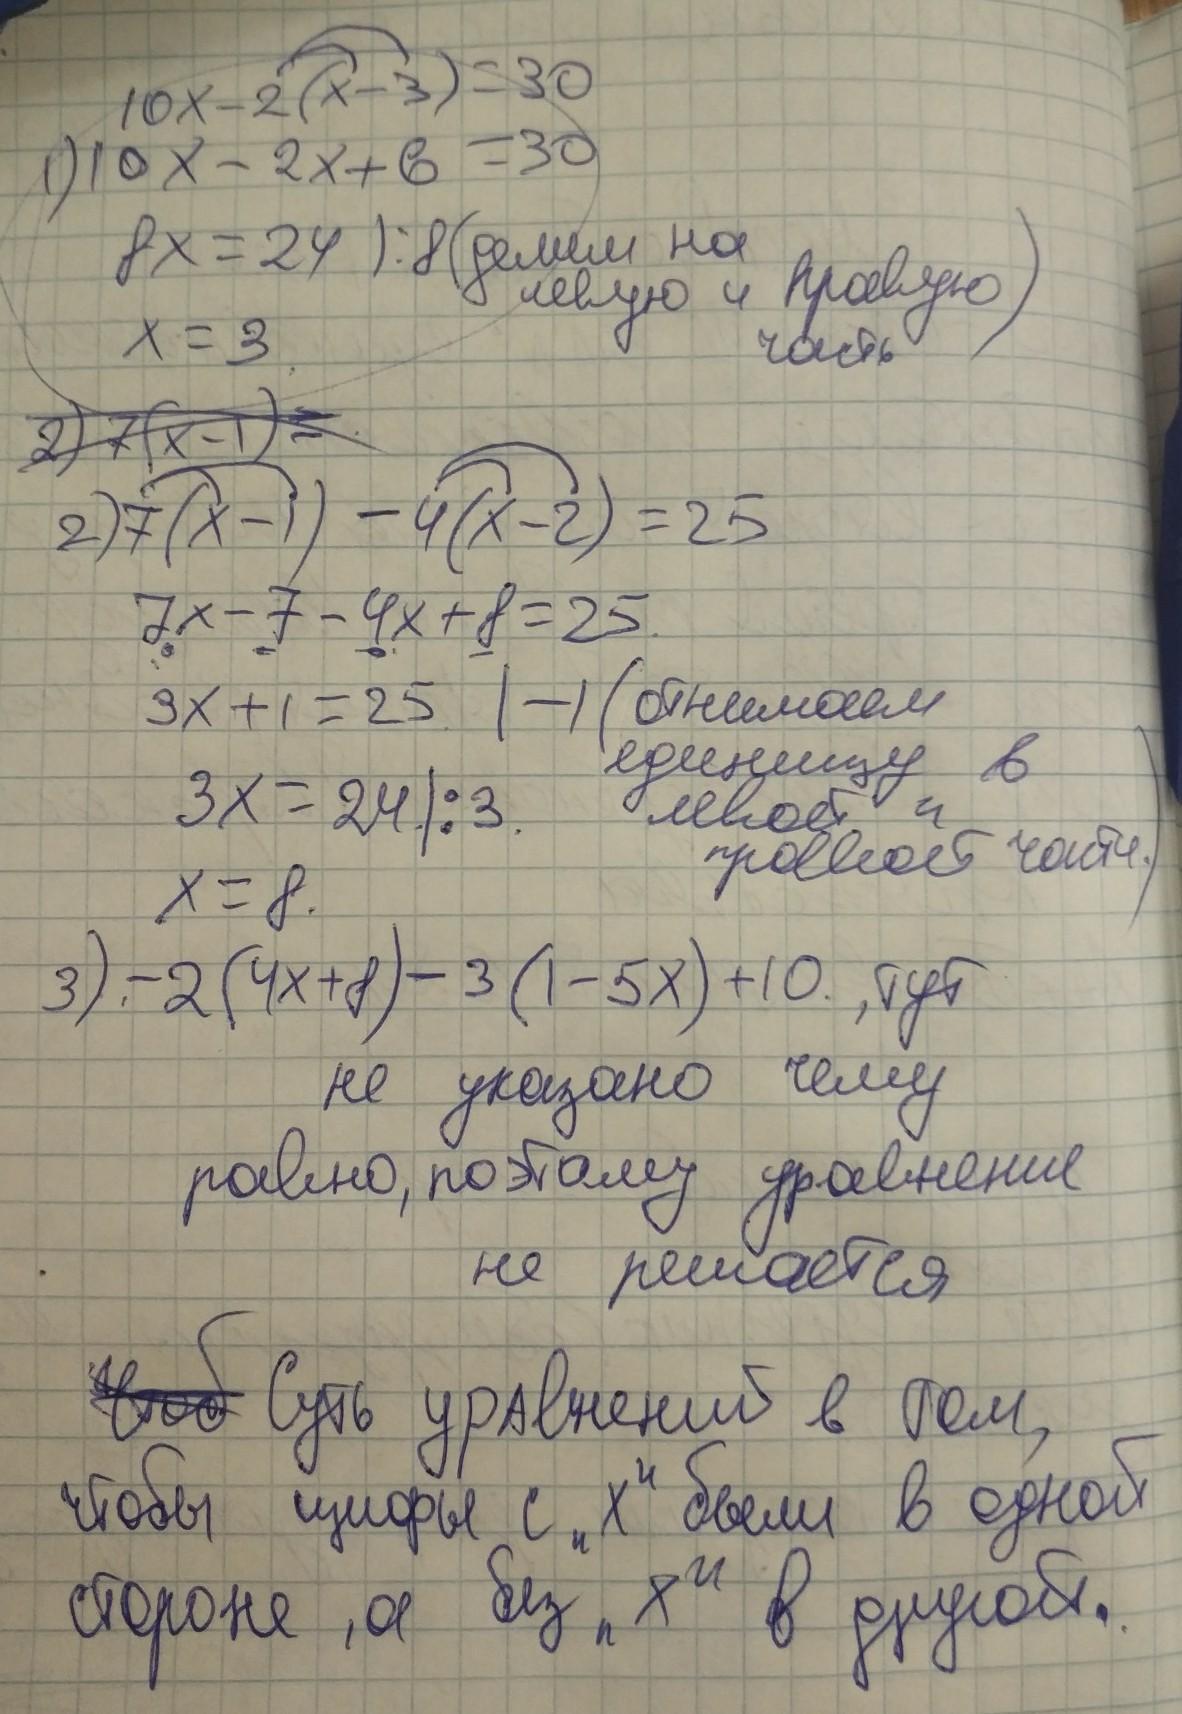 10x-2(x-3)=30
1) 10x-2x+6=30
8x=24 ):8(делим на
левую и правую
часть)
x=3.
2) 7(x-1)=
2) 7(x-1)-4(x-2)=25
7x-7-4x+8=25.
3x+1=25. |-1(отнимаем
единицу в
левой и
правой части.)
3x=24.|:3.
x=8.
3).-2(4x+8)-3(1-5x)+10. ,тут
не указано чему
равно, поэтому уравнение
не решается
Чтоб Суть уравнений в том,
чтобы цифры с „x“ были в одной
стороне, а без „x“ в другой.